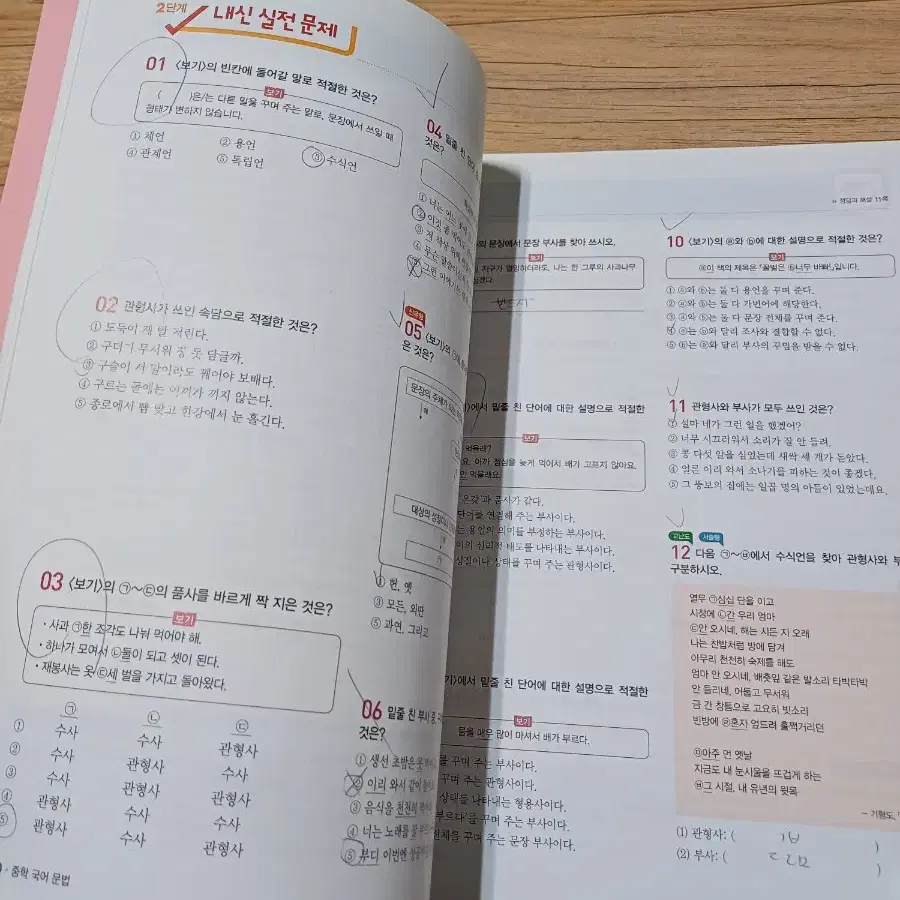 2단계
내신 실전 문제
01 <보기>의 빈칸에 들어갈 말로 적절한 것은?
보기
( )은/는 다른 말을 꾸며 주는 말로, 문장에서 쓰일 때
형태가 변하지 않습니다.
① 체언 ② 용언 ③ 수식언
④ 관계언 ⑤ 독립언
02 관형사가 쓰인 속담으로 적절한 것은?
① 도둑이 제 발 저린다.
② 구더기 무서워 장 못 담글까.
③ 구슬이 서 말이라도 꿰어야 보배다.
④ 구르는 돌에는 이끼가 끼지 않는다.
⑤ 종로에서 뺨 맞고 한강에서 눈 흘긴다.
03 <보기>의 ㉠~㉢의 품사를 바르게 짝 지은 것은?
보기
• 사과 ㉠한 조각도 나눠 먹어야 해.
• 하나가 모여서 ㉡둘이 되고 셋이 된다.
• 재봉사는 옷 ㉢세 벌을 가지고 돌아왔다.
㉠ ㉡ ㉢
① 수사 수사 관형사
② 수사 관형사 수사
③ 수사 관형사 관형사
④ 관형사 수사 수사
⑤ 관형사 수사 관형사
중학 국어 문법
04 밑줄 친
것은?
① 너는
③ 전
05 <보기>의
은 것은?
문장의 주체가
대상의 성질이나
① 헌, 옛
③ 모든, 외딴
⑤ 과연, 그리고
06 밑줄 친 부사 중
것은?
① 생선 초밥은
② 이리 와서 같이
③ 음식을 천천히
④ 너는 노래를
⑤ 부디 이번엔
정답과 해설 11쪽
문장에서 문장 부사를 찾아 쓰시오.
보기
지구가 멸망하더라도, 나는 한 그루의 사과나무
반드시
에서 밑줄 친 단어에 대한 설명으로 적절한
보기
먹을래?
아까 점심을 늦게 먹어서 배가 고프지 않아요.
안 먹을래요.
품사가 같다.
단어를 연결해 주는 부사이다.
용언의 의미를 부정하는 부사이다.
심리적 태도를 나타내는 부사이다.
성질이나 상태를 꾸며 주는 관형사이다.
에서 밑줄 친 단어에 대한 설명으로 적절한
보기
물을 매우 많이 마셔서 배가 부르다.
꾸며 주는 부사이다.
꾸며 주는 관형사이다.
상태를 나타내는 형용사이다.
꾸며 주는 부사이다.
전체를 꾸며 주는 문장 부사이다.
10 <보기>의 ⓐ와 ⓑ에 대한 설명으로 적절한 것은?
보기
ⓐ이 책의 제목은 「꿀벌은 ⓑ너무 바빠!」입니다.
① ⓐ와 ⓑ는 둘 다 용언을 꾸며 준다.
② ⓐ와 ⓑ는 둘 다 가변어에 해당한다.
③ ⓐ와 ⓑ는 둘 다 문장 전체를 꾸며 준다.
④ ⓐ는 ⓑ와 달리 조사와 결합할 수 없다.
⑤ ⓑ는 ⓐ와 달리 부사의 꾸밈을 받을 수 없다.
11 관형사와 부사가 모두 쓰인 것은?
① 설마 네가 그런 일을 했겠어?
② 너무 시끄러워서 소리가 잘 안 들려.
③ 콩 다섯 알을 심었는데 새싹 세 개가 돋았다.
④ 얼른 이리 와서 소나기를 피하는 것이 좋겠다.
⑤ 그 뚱보의 집에는 일곱 명의 아들이 있었는데요.
고난도 서술형
12 다음 ㉠~㉥에서 수식언을 찾아 관형사와
구분하시오.
열무 ㉠삼십 단을 이고
시장에 ㉡간 우리 엄마
㉢안 오시네, 해는 시든 지 오래
나는 찬밥처럼 방에 담겨
아무리 천천히 숙제를 해도
엄마 안 오시네, 배춧잎 같은 발소리 타박타박
안 들리네, 어둡고 무서워
금 간 창틈으로 고요히 빗소리
빈방에 ㉣혼자 엎드려 훌쩍거리던
㉤아주 먼 옛날
지금도 내 눈시울을 뜨겁게 하는
㉥그 시절, 내 유년의 윗목
- 기형도
(1) 관형사: ( ㄱㅂ )
(2) 부사: ( ㄷㄹㅁ )